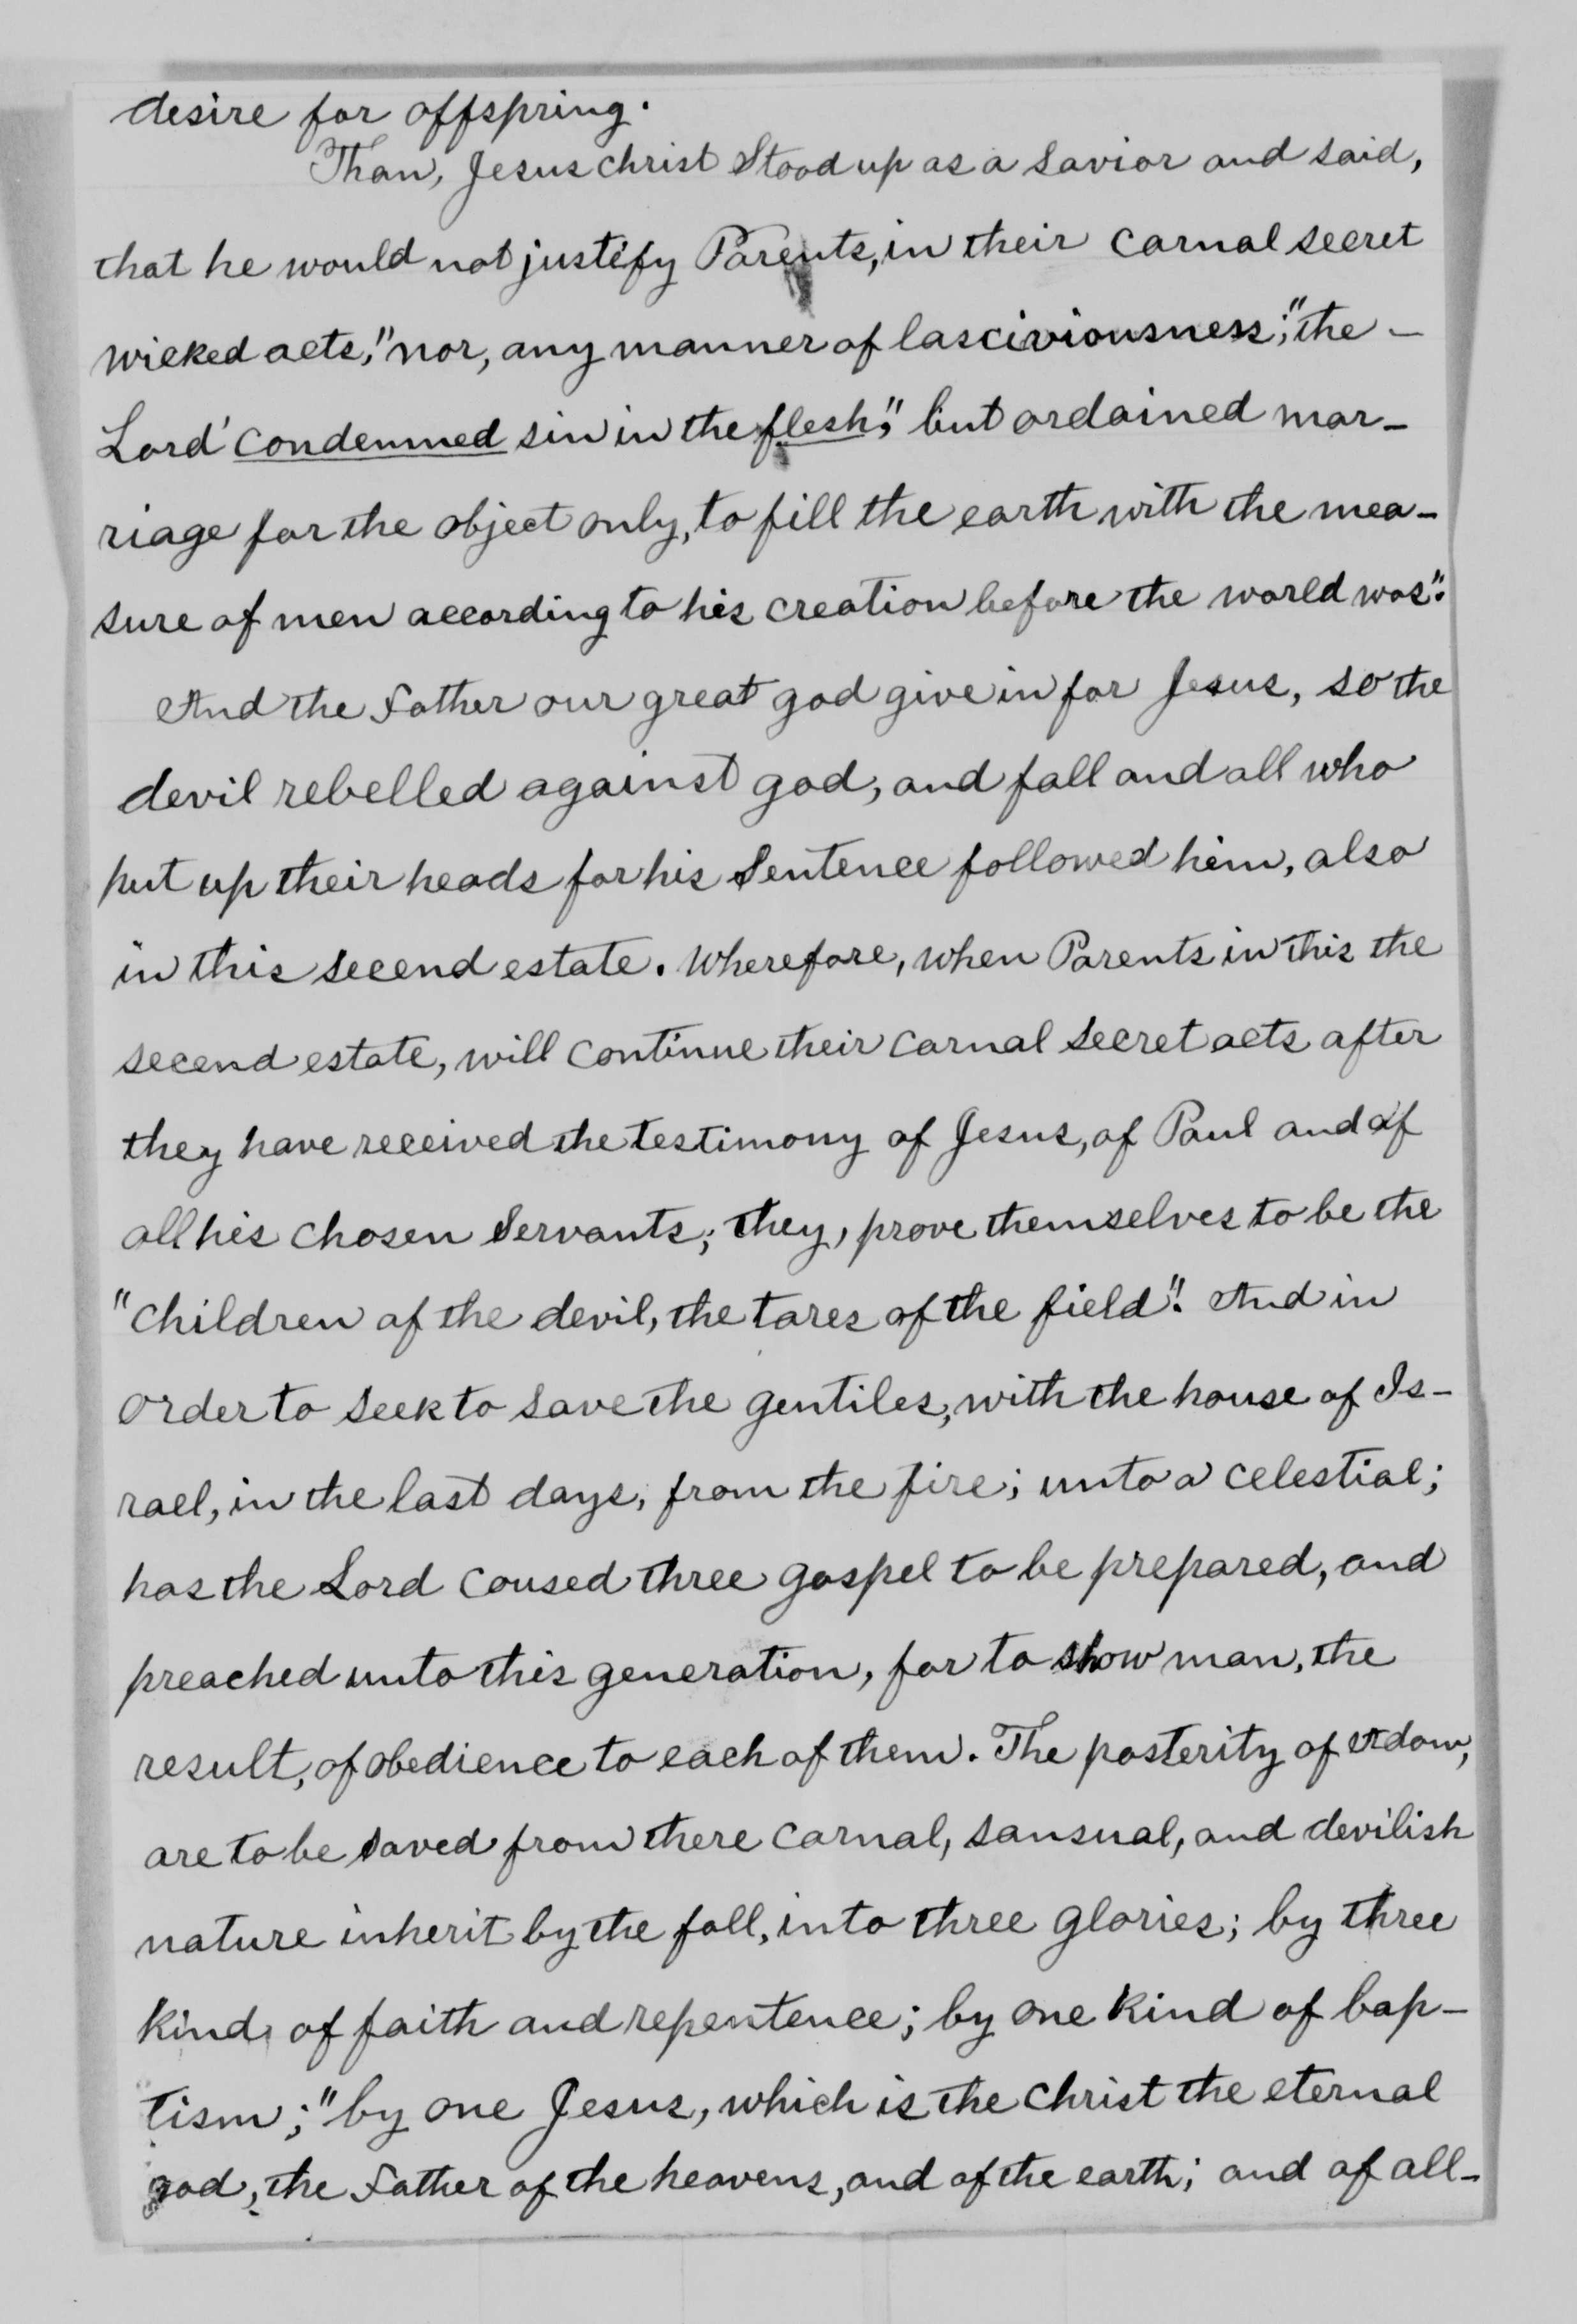 desire for offspring.
Than, Jesus christ Stood up as a Savior and said,
that he would not justify Parents, in their carnal secret
wicked acts," nor, any manner of lasciviousness;" the -
Lord' condemned sin in the flesh," but ordained mar-
riage for the object only, to fill the earth with the mea-
sure of men according to his creation before the world was".
And the Father our great god give in for Jesus, so the
devil rebelled against god, and fall and all who
put up their heads for his Sentence followed him, also
in this secend estate. Wherefore, when Parents in this the
secend estate, will continue their carnal secret acts after
they have received the testimony of Jesus, of Paul and of
all his chosen Servants; they, prove themselves to be the
"children of the devil, the tares of the field". And in
order to seek to save the gentiles, with the house of Is-
rael, in the last days, from the fire; unto a celestial;
has the Lord caused three gospel to be prepared, and
preached unto this generation, for to show man, the
result, of obedience to each of them. The posterity of Adam,
are to be saved from there carnal, sansual, and devilish
nature inherit by the fall, into three glories; by three
kind, of faith and repentence; by one kind of bap-
tism;" by one Jesus, which is the christ the eternal
god, the Father of the heavens, and of the earth; and of all-